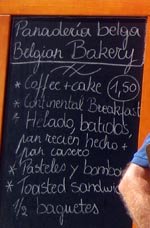 Panadería belga
Belgian Bakery
* Coffee + cake 1,50
* Continental Breakfast
* Helado, batidos,
pan recien hecho +
pan casero
* Pasteles y bombo
* Toasted sandwic
1/2 baguetes